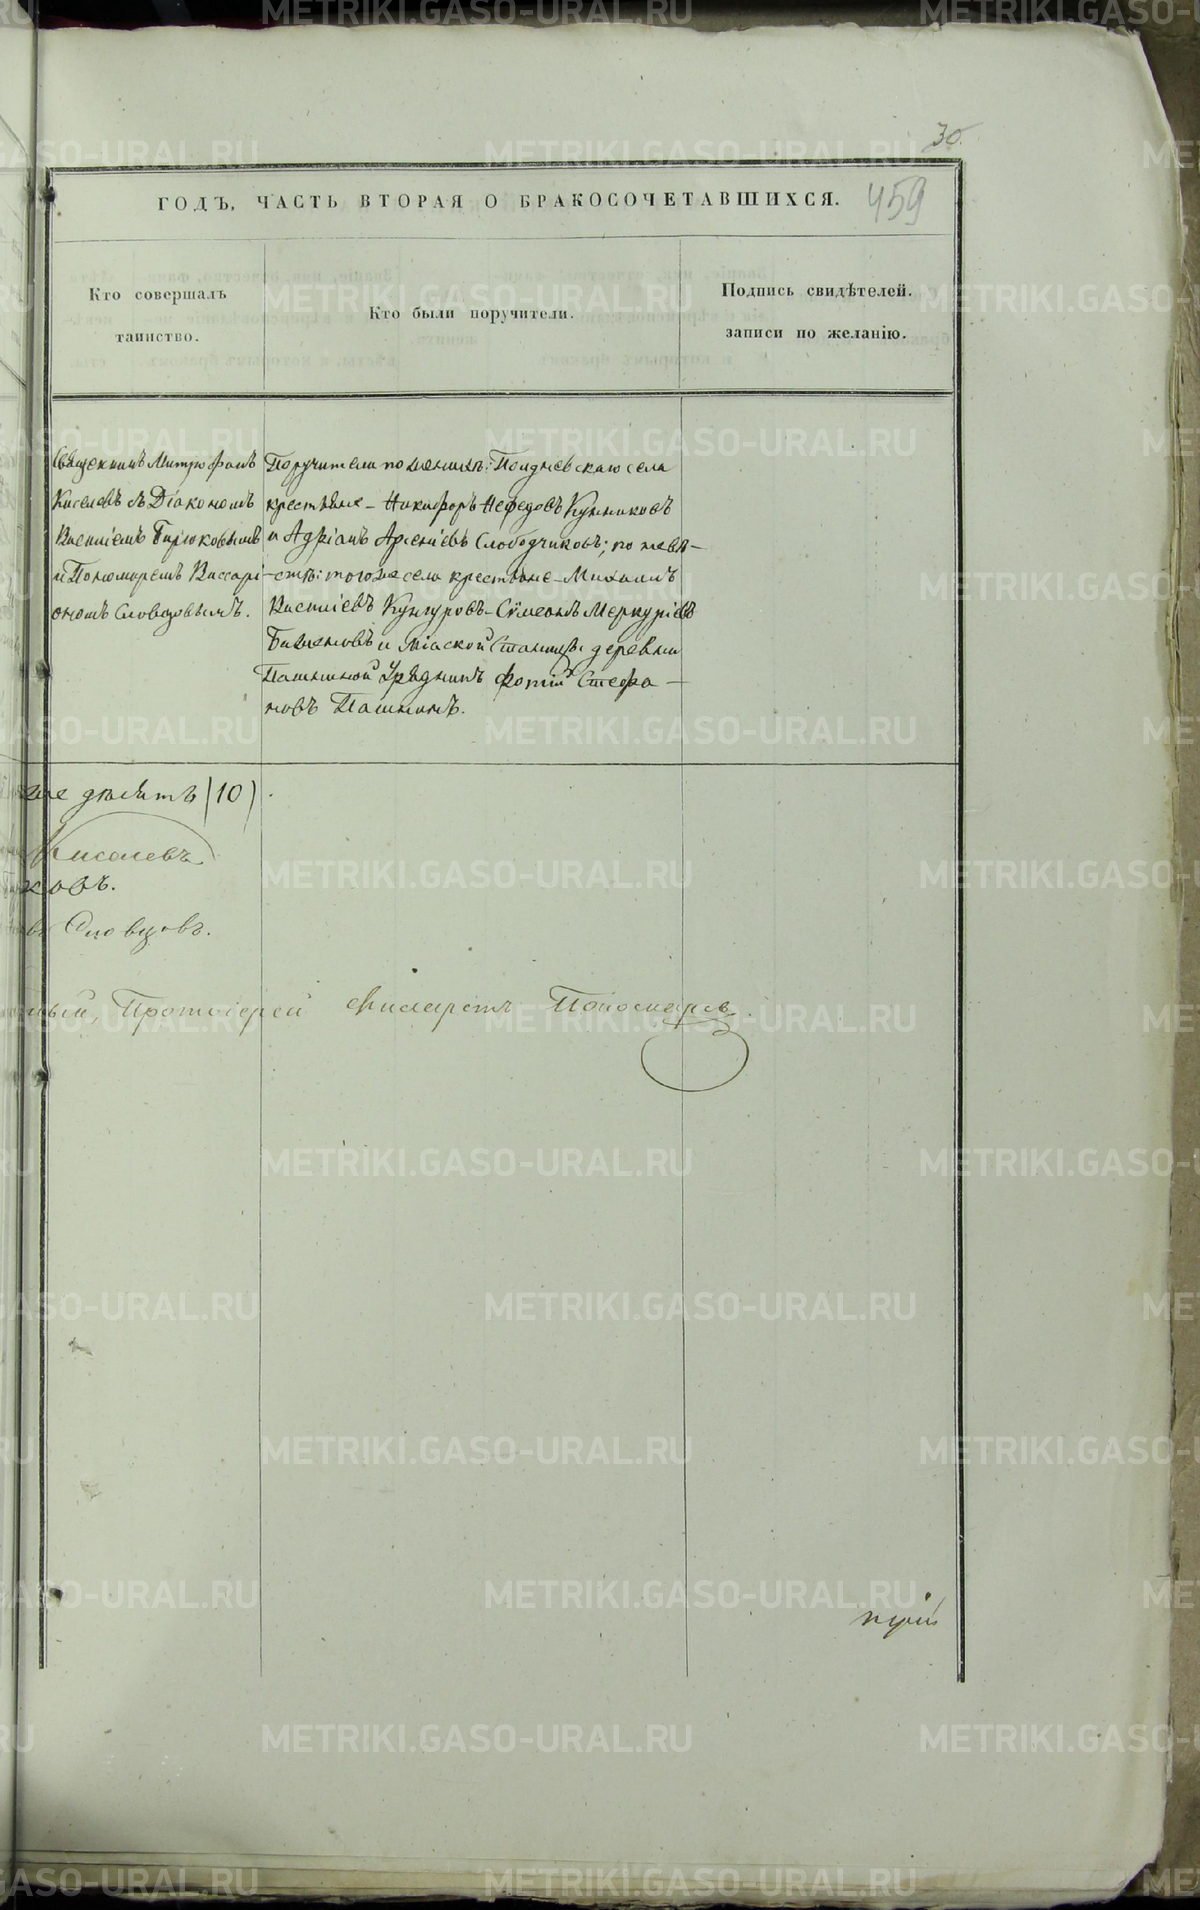 30.
ГОДЪ, ЧАСТЬ ВТОРАЯ О БРАКОСОЧЕТАВШИХСЯ.
459
Кто совершалъ
таинство.
Кто были поручители.
Подпись свидѣтелей.
записи по желанію.
Священникъ Митрофанъ
Киселевъ съ Діакономъ
Василіемъ Бирюковымъ
и Пономаремъ Виссарі-
ономъ Словцовымъ.
Поручители по женихѣ: Полдневскаго села
крестьяне – Никифоръ Нефедовъ Кунниковъ
и Адріанъ Арсеніевъ Слободчиковъ; по невѣ–
–стѣ: того же села крестьяне – Михаилъ
Василіевъ Кунгуровъ – Сѵмеонъ Меркуріевъ
и Міаской Станицы деревни
Пашниной Урядникъ Фотій Стефа–
новъ Пашнинъ.
десять (10).
Киселевъ
ковъ.
Словцовъ.
Протоіерей Филаретъ Пономаревъ.
METRIKI.GASO-URAL.RU